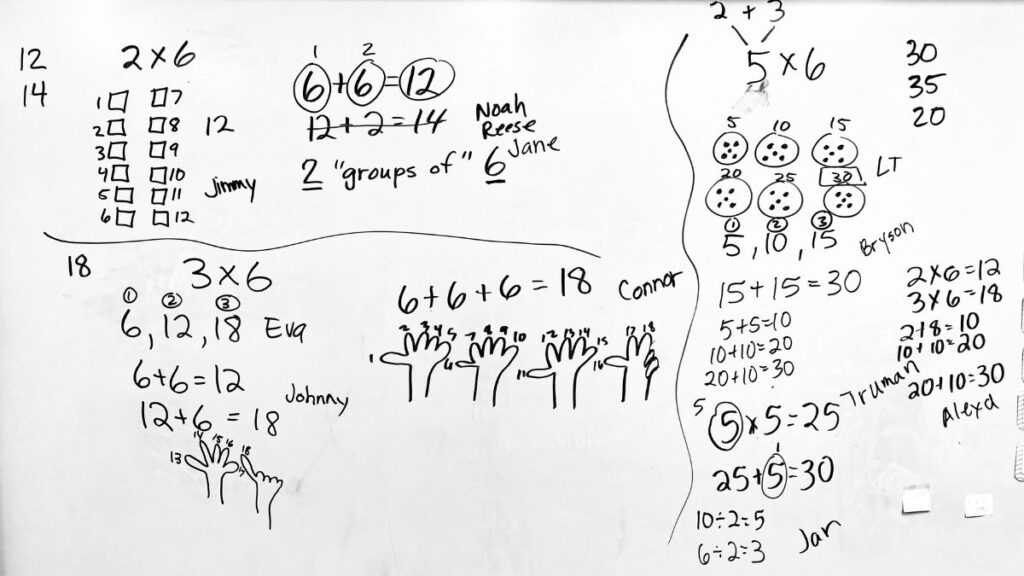 12
14
2 × 6
1 7
2 8
3 9
4 10
5 11
6 12
12
Jimmy
1 2
6 + 6 = 12
12 + 2 = 14
Noah
Reese
Jane
2 "groups of" 6
18
3 × 6
1 2 3
6, 12, 18 Eva
6 + 6 = 12
12 + 6 = 18
Johnny
14 15 16
13 17 18
6 + 6 + 6 = 18 Connor
2 3 4 5 7 8 9 10 12 13 14 15 17 18
1 6 11 16
2 + 3
5 × 6
30
35
20
5 10 15
20 25 30
LT
1 2 3
5, 10, 15
Bryson
15 + 15 = 30
5 + 5 = 10
10 + 10 = 20
20 + 10 = 30
Truman
2 × 6 = 12
3 × 6 = 18
2 + 8 = 10
10 + 10 = 20
20 + 10 = 30
Alexa
5
5 × 5 = 25
1
25 + 5 = 30
10 ÷ 2 = 5
6 ÷ 2 = 3